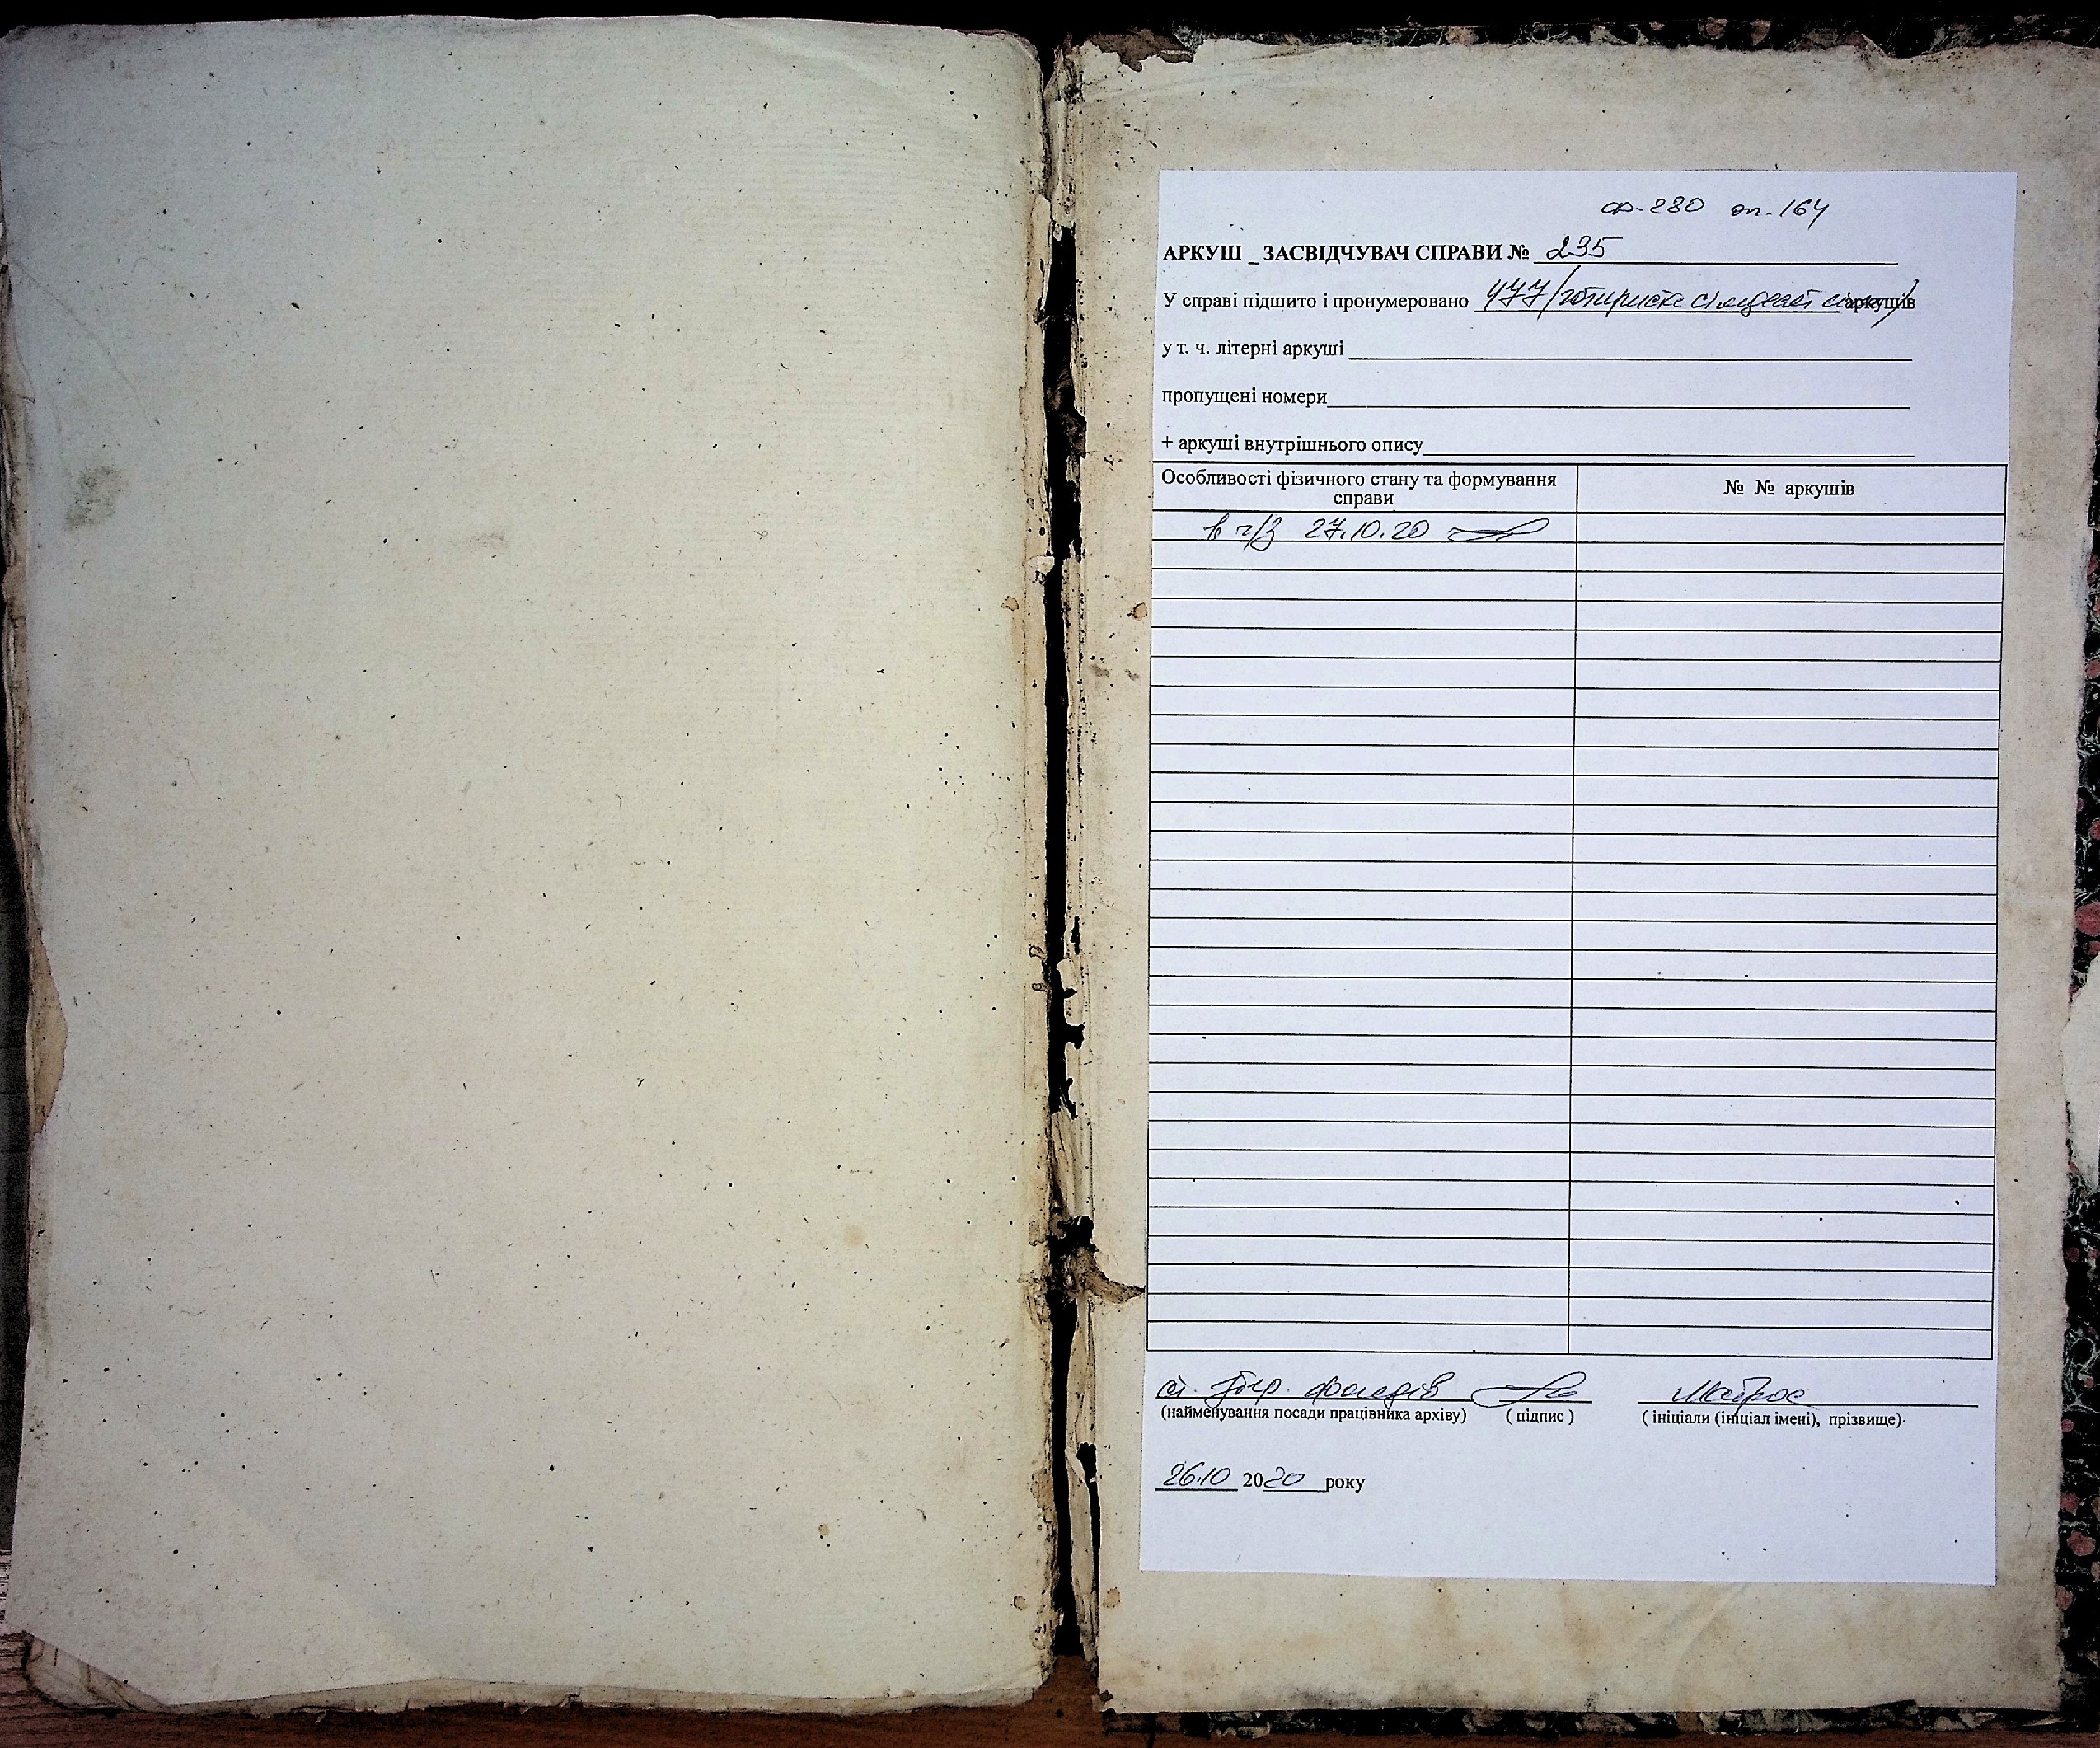 ф-280 оп. 164
АРКУШ _ ЗАСВІДЧУВАЧ СПРАВИ № 235
У справі підшито і пронумеровано 477 /чотириста сімдесят сім/ аркушів
у т. ч. літерні аркуші
пропущені номери
+ аркуші внутрішнього опису
Особливості фізичного стану та формування справи
№ № аркушів
в ч/з 27.10.20
ст. збер. фондів
(найменування посади працівника архіву) ( підпис ) ( ініціали (ініціал імені), прізвище)
26.10 2020 року